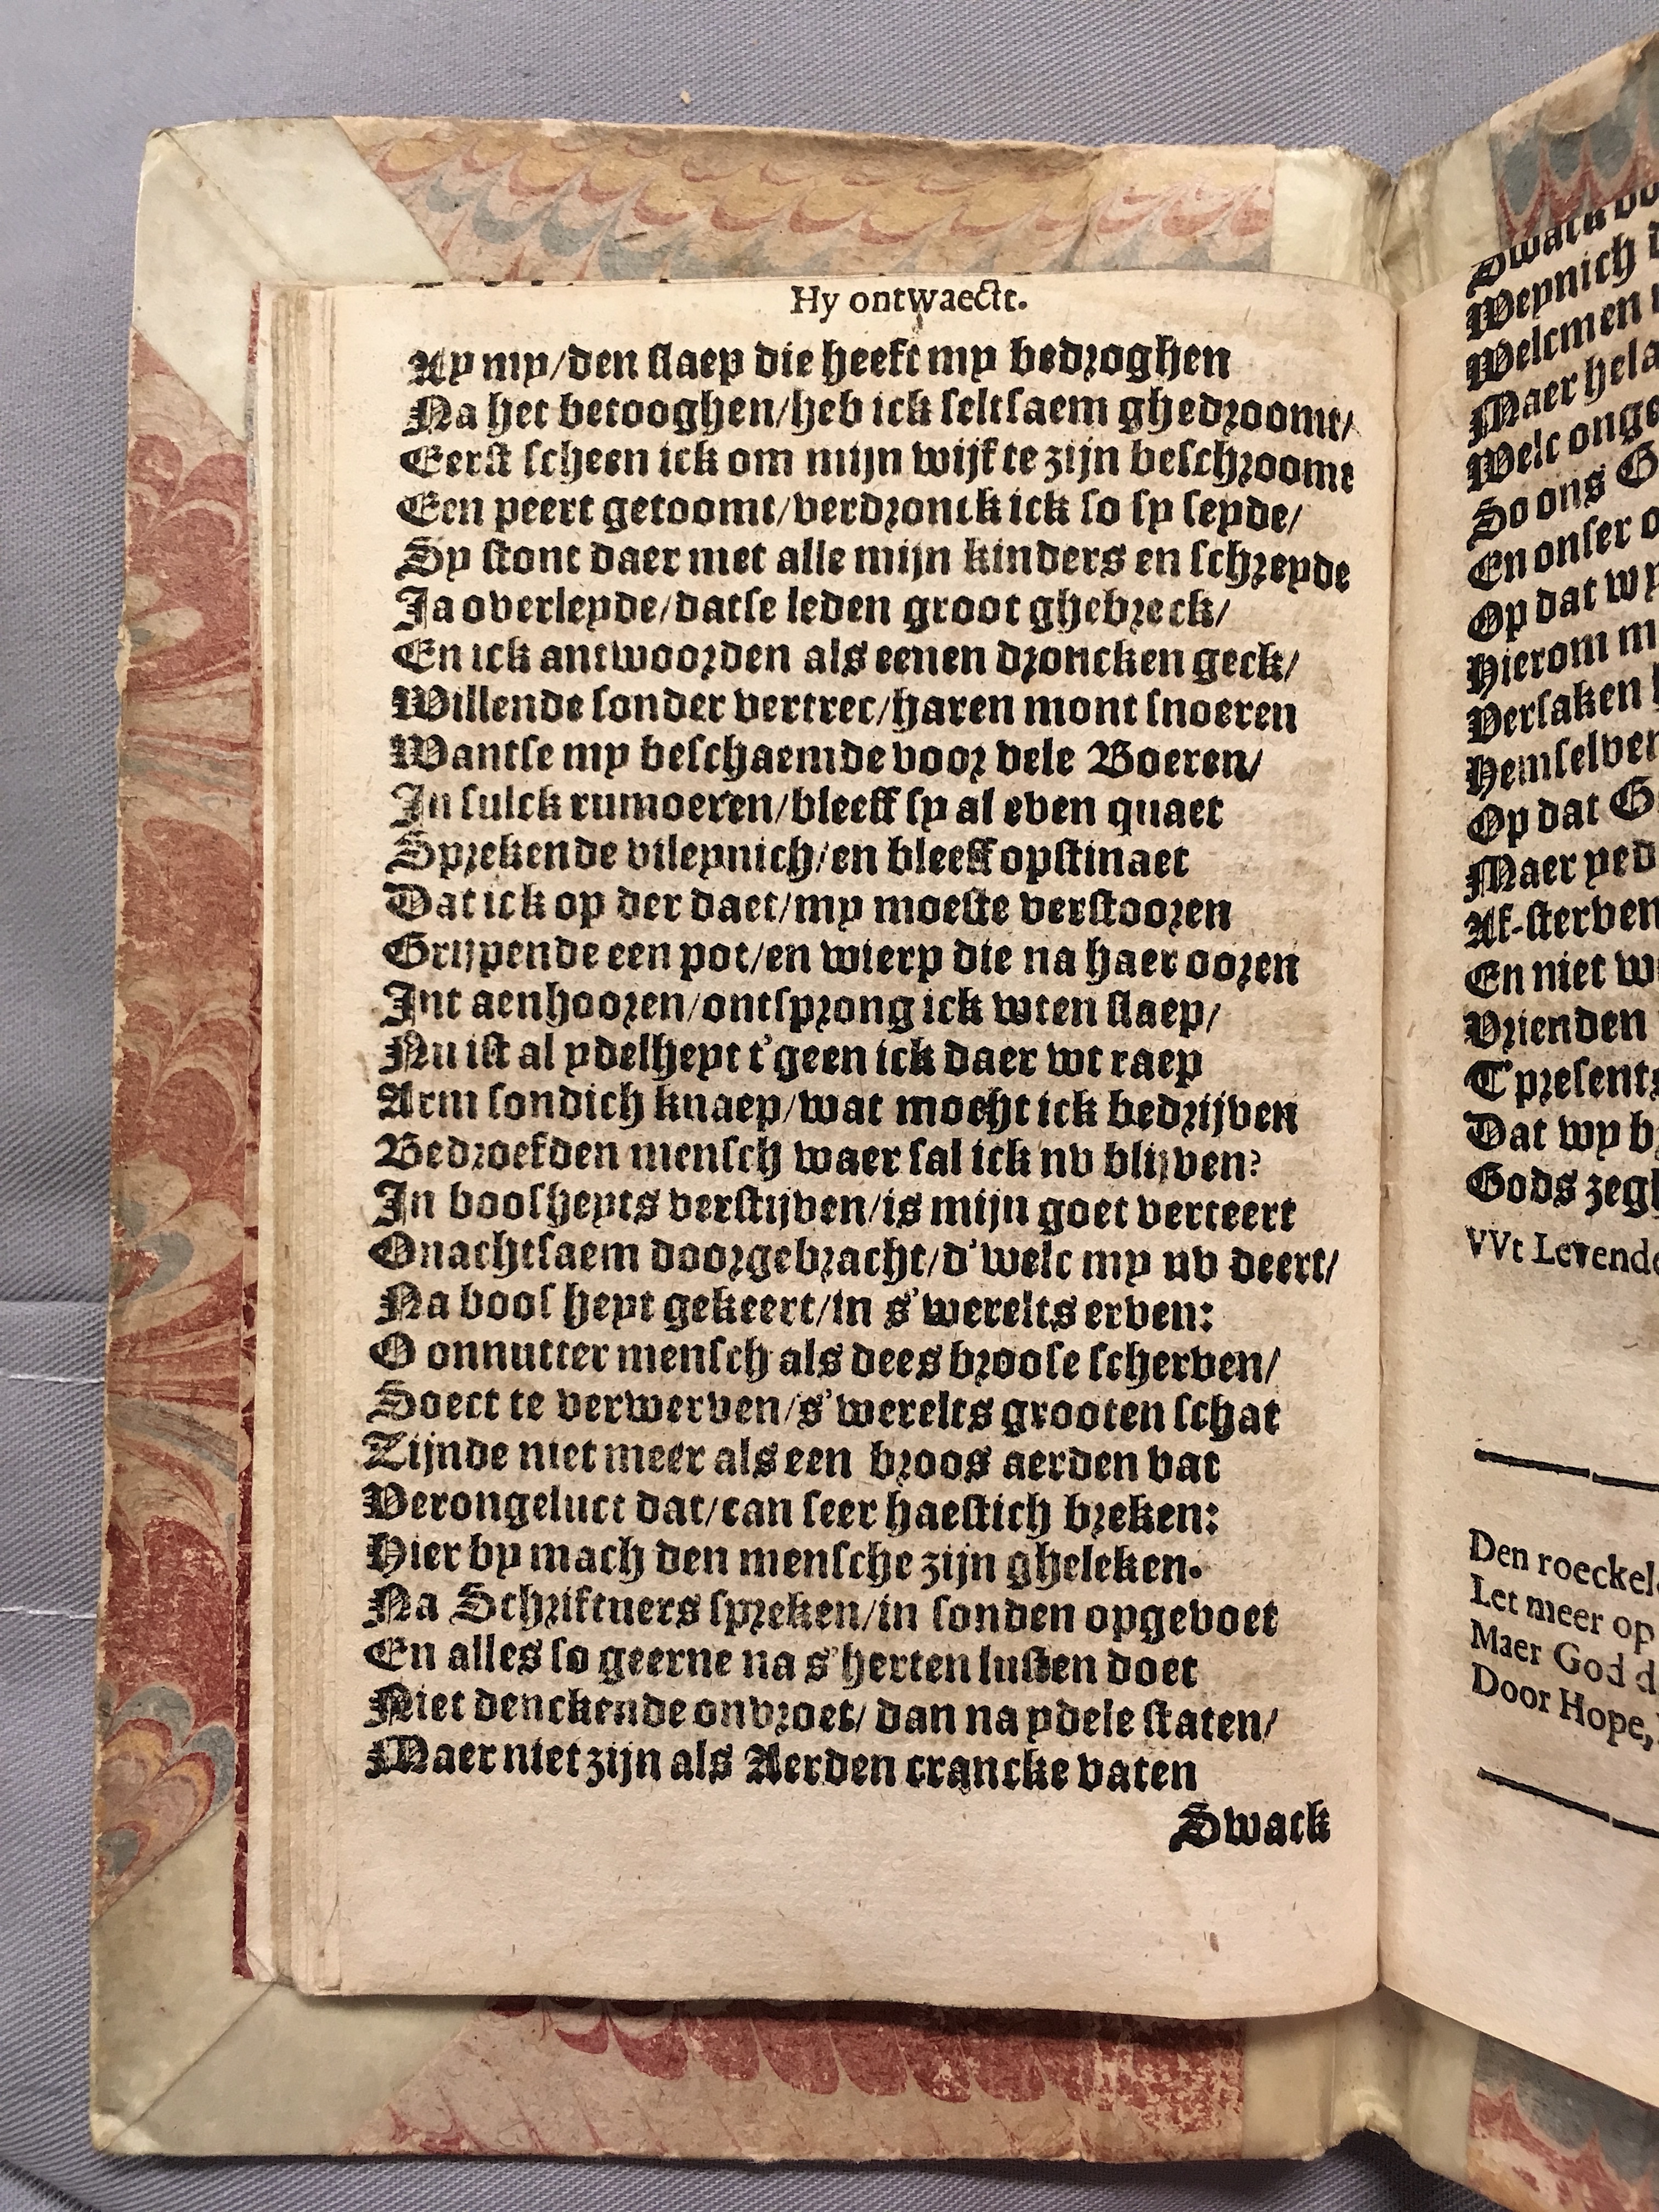 Hy ontwaectt.
Ay my/den slaep die heeft my bedroghen
Na het betooghen/heb ick seltsaem ghedroomt/
Eerst scheen ick om mijn wijf te zijn beschroomt
Een peert getoomt/verdronck ick so sy seyde/
Sy stont daer met alle mijn kinders en schreyde
Ja overleyde/datse leden groot ghebreck/
En ick antwoorden als eenen droncken geck/
Willende sonder vertrec/haren mont snoeren
Wantse my beschaemde voor vele Boeren/
In sulck rumoeren/bleeff sy al even quaet
Sprekende vileynich/en bleeff opstinaet
Dat ick op der daet/my moeste verstooren
Grijpende een pot/en wierp die na haer ooren
Int aenhooren/ontsprong ick wten slaep/
Nu ist al ydelheyt t'geen ick daer wt raep
Arm sondich knaep/wat mocht ick bedrijven
Bedroefden mensch waer sal ick nv blijven?
In boosheyts verstijven/is mijn goet verteert
Onachtsaem doorgebracht/d'welc my nv deert/
Na boos heyt gekeert/in s'werelts erven:
O onnutter mensch als dees broose scherven/
Soect te verwerven/s'werelts grooten schat
Zijnde niet meer als een broos aerden vat
Verongeluct dat/can seer haestich breken:
Hier by mach den mensche zijn gheleken.
Na Schriftuers spreken/in sonden opgevoet
En alles so geerne na s'herten lusten doet
Niet denckende onvroet/dan na ydele staten/
Maer niet zijn als Aerden crancke vaten
Swack
Weynich
Welcmen
Welc
So ons
En onser
Op dat wy
Hierom
Versaken
Op dat
Maer
Af-sterven
En niet
Vrienden
Dat wy
Gods
VVt
Den
Let meer op
Maer God
Door Hope,